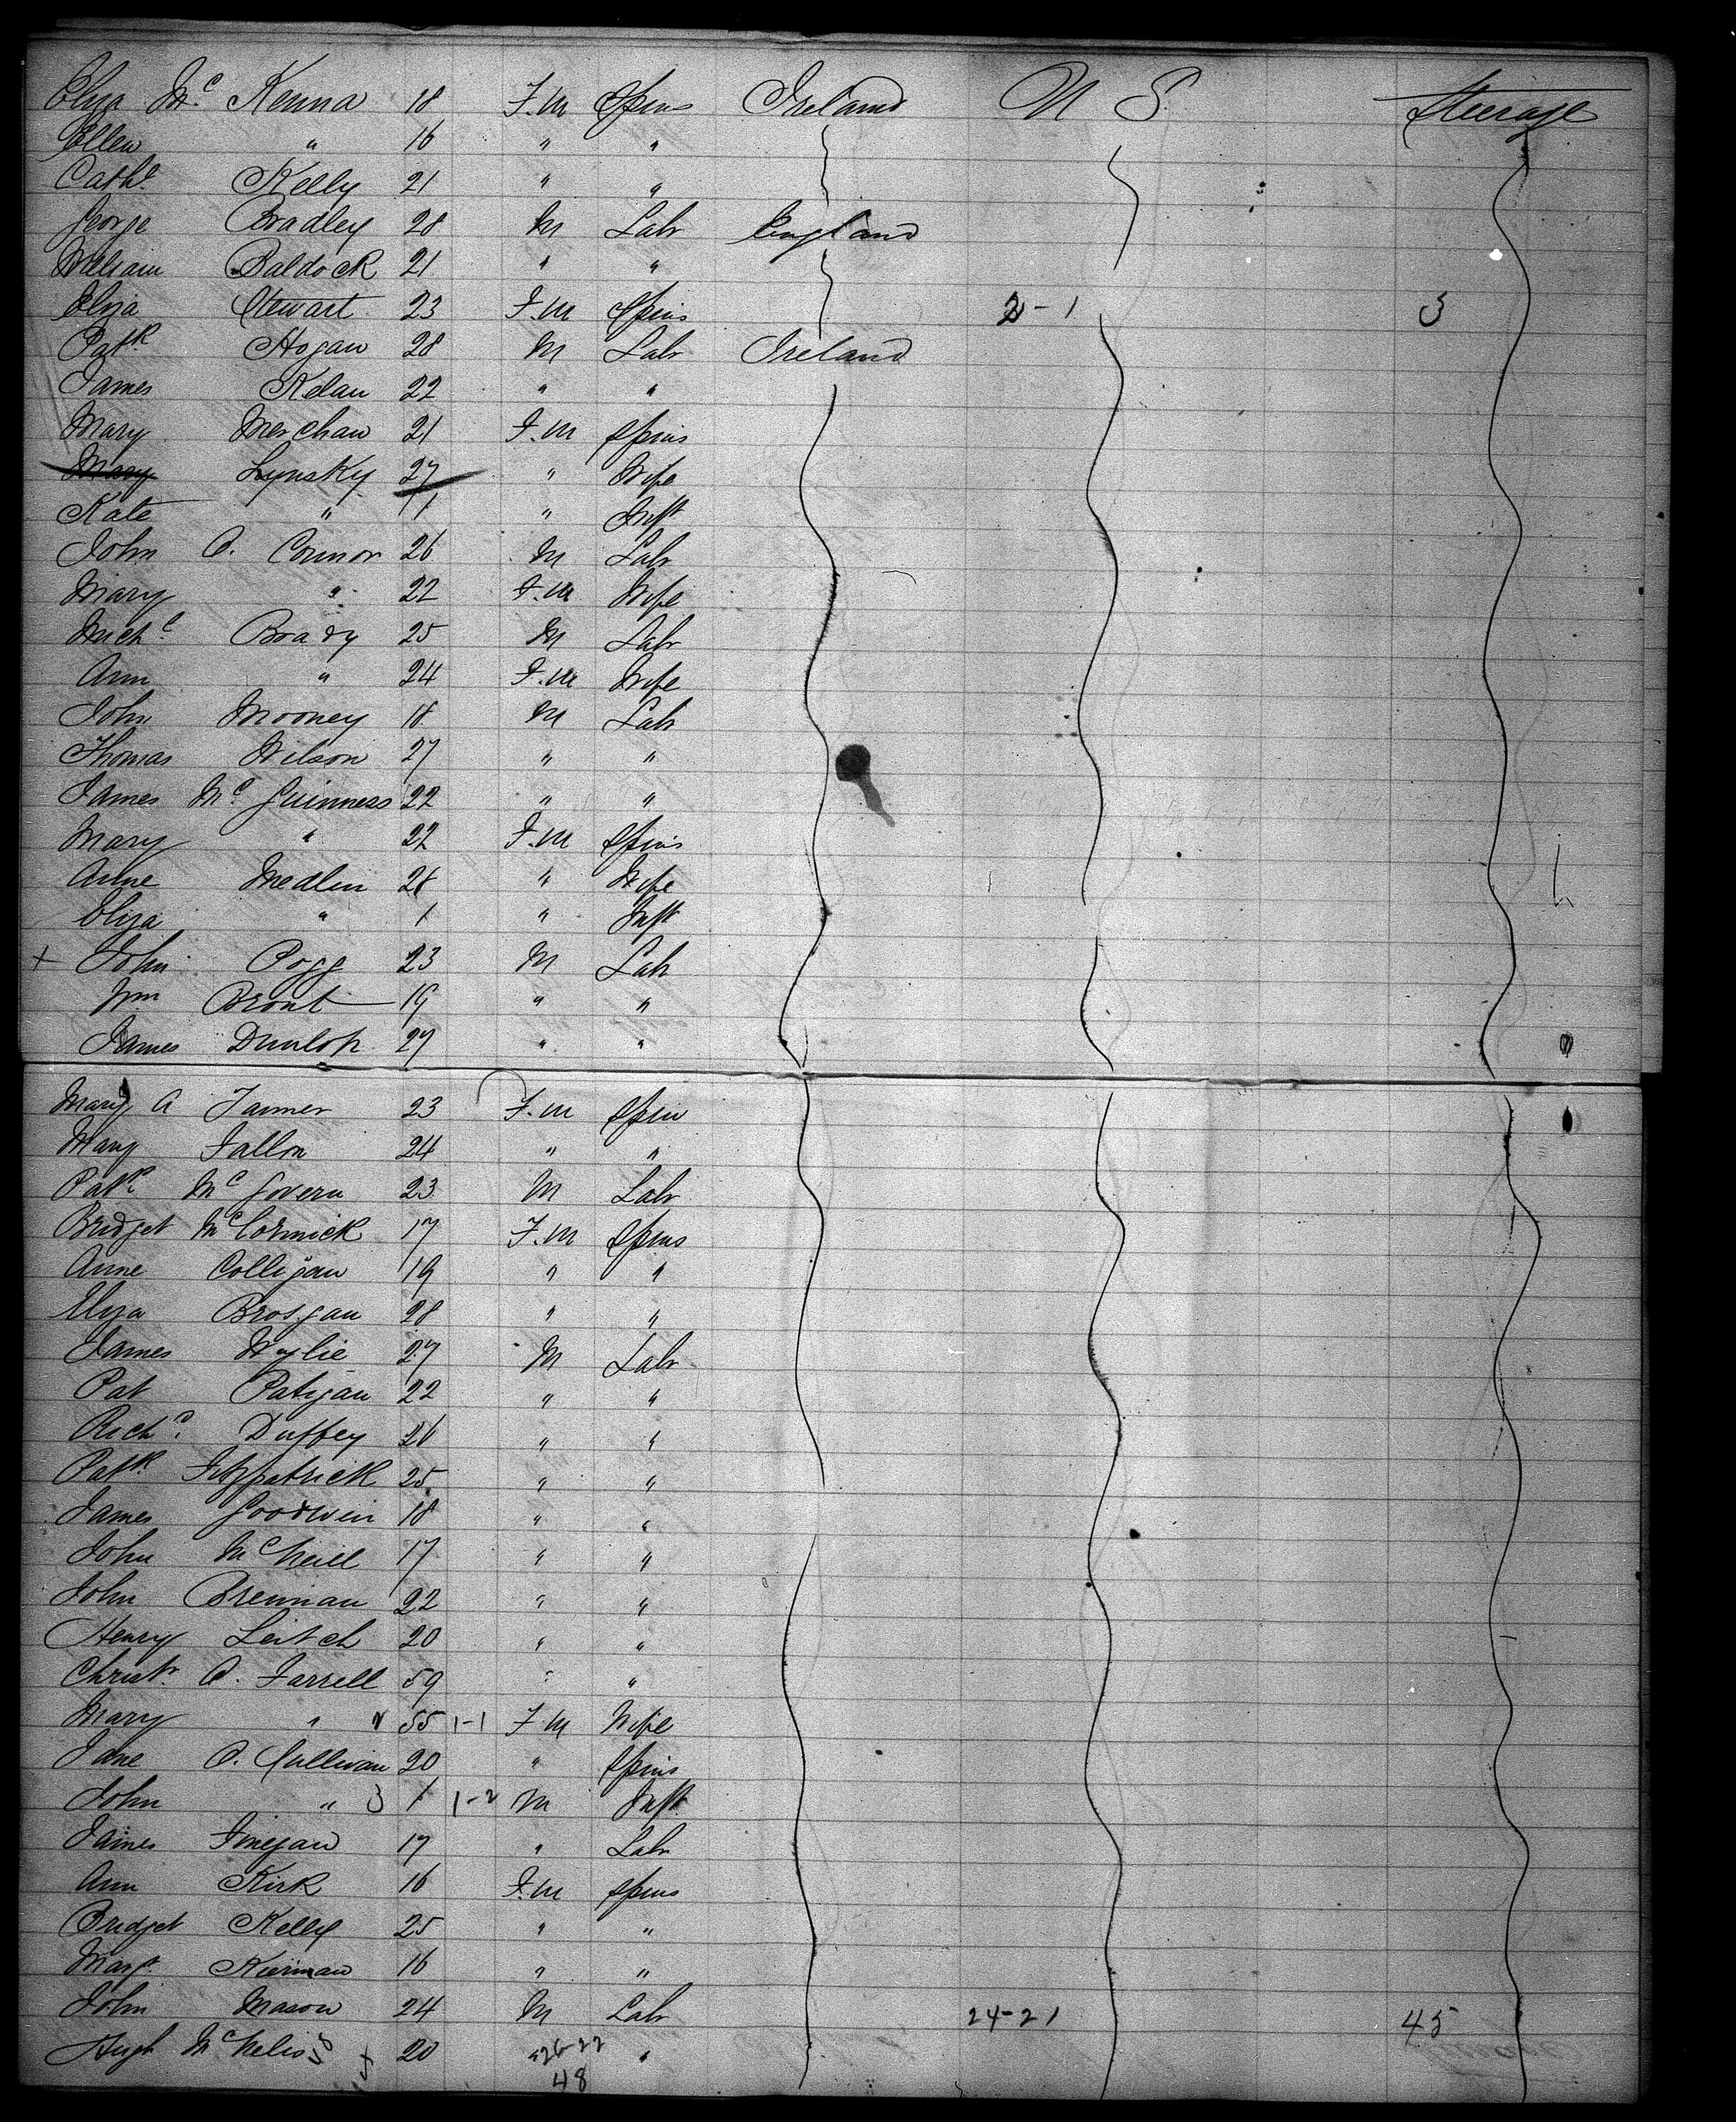 Eliza Mc Kenna 18 F.m Spins Ireland U S. Steerage
Ellen " 16 " "
Cathe Kelly 21 " "
George Bradley 28 M Labr England
William Baldock 21 " "
Eliza Stewart 23 F.m Spins 2-1 3
Patk Hogan 28 M Labr Ireland
James Kelan 22 " "
Mary Merchan 21 F.m Spins
Mary Lynsky 27 " Wife
Kate " 1 " Inft
John O. Connor 26 M Labr
Mary " 22 F.m Wife
Michl Brady 25 M Labr
Ann " 24 F.m Wife
John Mooney 18 M Labr
Thomas Wilson 27 " "
James Mc Guinness 22 " "
Mary " 22 F.m Spins
Anne Medlin 28 " Wife
Eliza " 1 " Inft
+ John Pogg 23 M Labr
Wm Bront 19 " "
James Dunlop 27 " "
Mary A Tanner 23 F.m Spin
Mary Fallon 24 " "
Patk Mc Govern 23 M Labr
Bridget McCormick 17 F.m Spins
Anne Colligan 19 " "
Eliza Brosgan 28 " "
James Wylie 27 M Labr
Pat Patigan 22 " "
Richd Duffey 26 " "
Patk Fitzpatrick 25 " "
James Goodwin 18 " "
John McNeill 17 " "
John Brennan 22 " "
Henry Leitch 20 " "
Christr O. Farrell 59 " "
Mary " 55 1-1 F.m Wife
Jane O. Sullivan 20 " Spins
John " 3 1 1-2 M Inft
James Finegan 17 " Labr
Ann Kirk 16 F.m Spins
Bridget Kelly 25 " "
Margt Kiernan 16 " "
John Mason 24 M Labr 24-21 45
Hugh McNelis 20 " 26-22 "
48